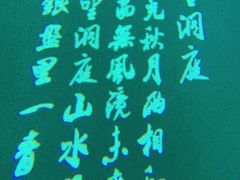 洞庭
光秋月兩相
面無風鏡未
望洞庭山水
銀盤里一青